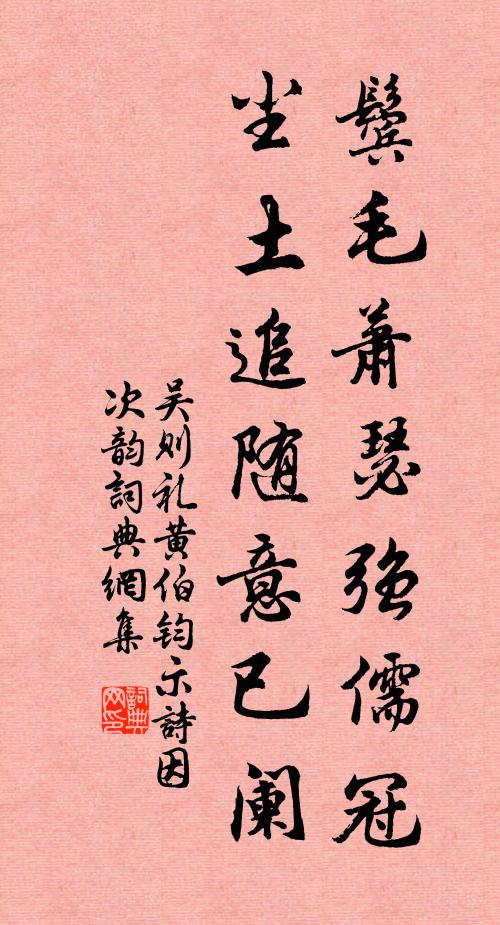 鬓毛萧瑟强儒冠
尘土追随意已阑
吴则礼黄伯钧示詩因
次韵詞典網集
詞典
网印